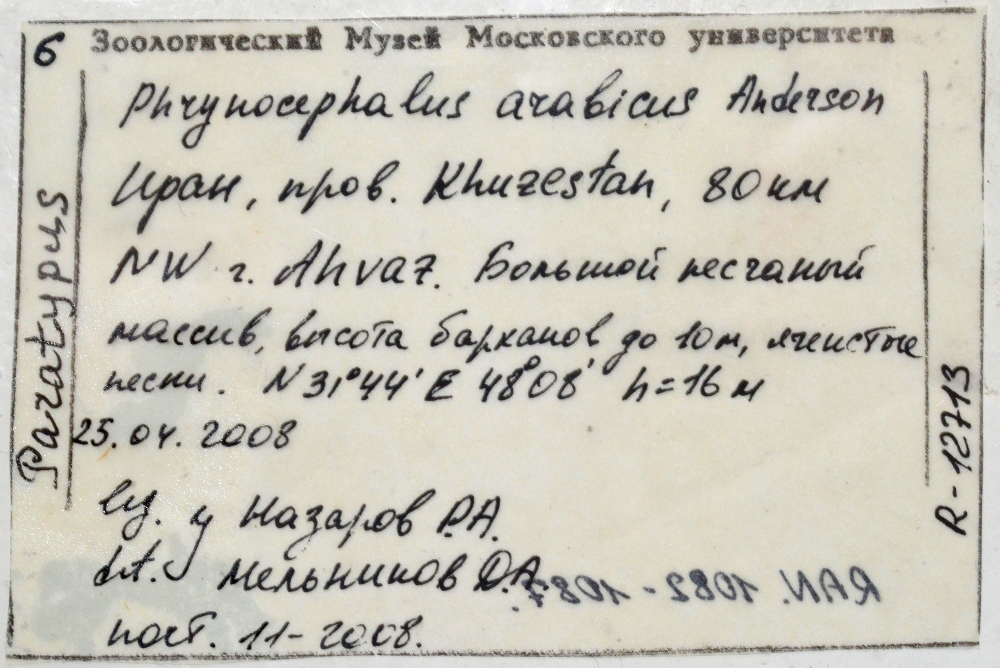 6 Зоологический Музей Московского университета
Phrynocephalus arabicus Anderson
Иран, пров. Khuzestan, 80 км
NW г. Ahvaz. Большой песчаный
массив, высота барханов до 10м, ячеистые
пески. N 31°44' E 48°08' h=16 м
25.04.2008
leg. Назаров Р.А.
det. Мельников Д.А.
пост. 11-2008.
RAN. 1082-1087.
Paratypus
R-12713